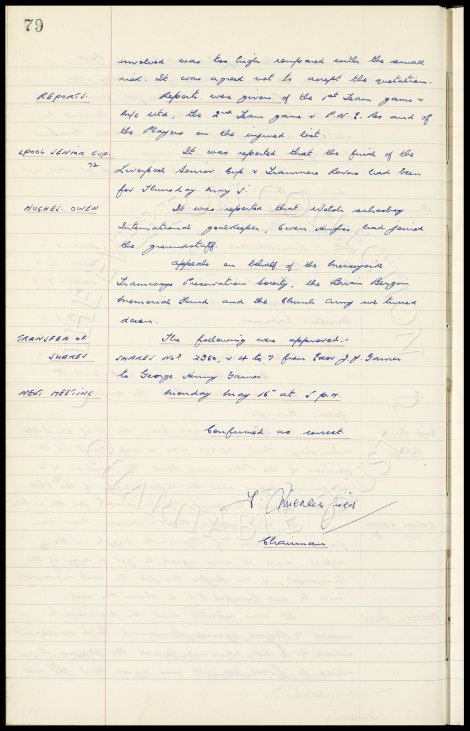 79
involved was too high compared with the small
risk. It was agreed not to accept the quotation.
REPORTS. Reports were given of the 1st Team game v
Utd, the 2nd Team game v P.N.E. Res and of
the Players on the injured list.
LPOOL SENIOR CUP. It was reported that the final of the
Liverpool Senior Cup v Tranmere Rovers had been
for Thursday May 5.
HUGHES. OWEN It was reported that Welsh schoolboy
International goalkeeper, Owen Hughes had joined
the groundstaff.
Appeals on behalf of the Merseyside
Tramways Preservation Society, the Brian Bergin
Memorial Fund and the Church Army were turned
down.
TRANSFER OF The following were approved:-
SHARES SHARES Nos 2360, & 4 to 7 from Exor J. H. Garner
to George Henry Garner.
NEXT MEETING Monday May 16th at 5 p.m.
Confirmed as correct
Chairman
THE EVERTON COLLECTION
CHARITABLE TRUST